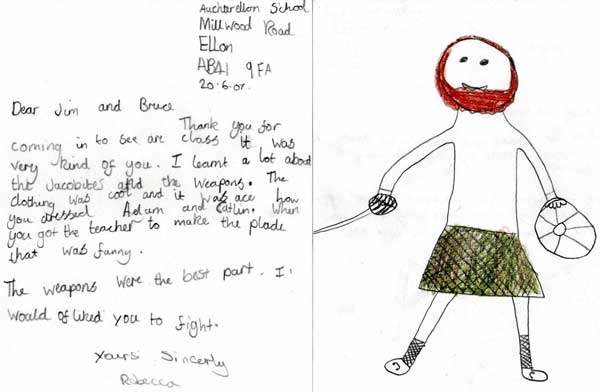 Auchterellon School
Millwood Road
Ellon
AB41 9FA
20.6.07.
Dear Jim and Bruce
Thank you for
coming in to see are class It was
very kind of you. I learnt a lot about
the Jacobites and the weapons. The
clothing was cool and it was ace how
you dressed Adam and Catlin. When
you got the teacher to make the plade
that was funny.
The weapons were the best part. I
would of liked you to fight.
Yours Sincerly
Rebecca